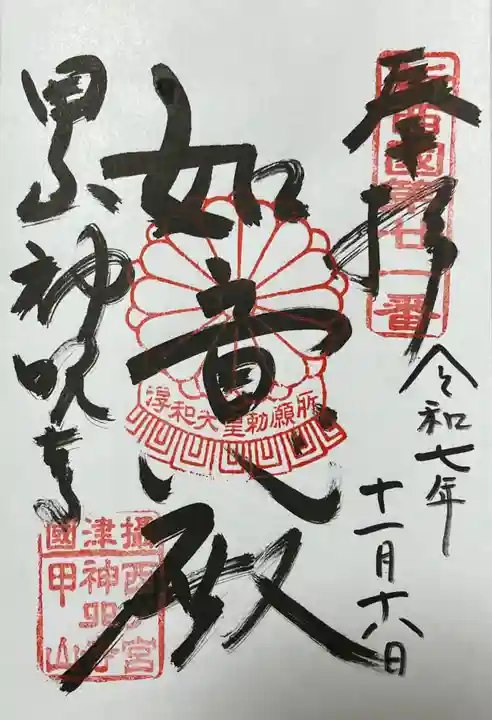 奉拝
西國第廿一番
令和七年
十一月十六日
如意殿
淳和天皇勅願所
甲山神呪寺
攝津國
西宮
神呪寺
甲山